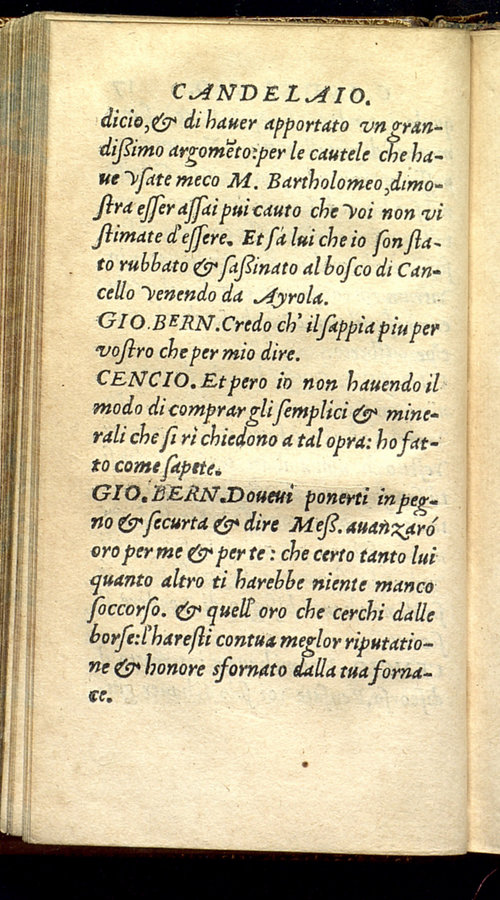 CANDELAIO.
dicio, & di hauer apportato vn gran-
dißimo argomẽto: per le cautele che ha-
ue vſate meco M. Bartholomeo, dimo-
ſtra eſſer aſſai pui cauto che voi non vi
ſtimate d'eſſere. Et sá lui che io ſon ſta-
to rubbato & ſaßinato al boſco di Can-
cello venendo da Ayrola.
GIO. BERN. Credo ch' il ſappia piu per
voſtro che per mio dire.
CENCIO. Et pero io non hauendo il
modo di comprar gli ſemplici & mine-
rali che ſi ri chiedono a tal opra: ho fat-
to come ſapete.
GIO. BERN. Doueui ponerti in peg-
no & ſecurta & dire Meß. auanzaró
oro per me & per te: che certo tanto lui
quanto altro ti harebbe niente manco
ſoccorſo. & quell' oro che cerchi dalle
borſe: l'hareſti con tua meglor riputatio-
ne & honore sfornato dalla tua forna-
ce.